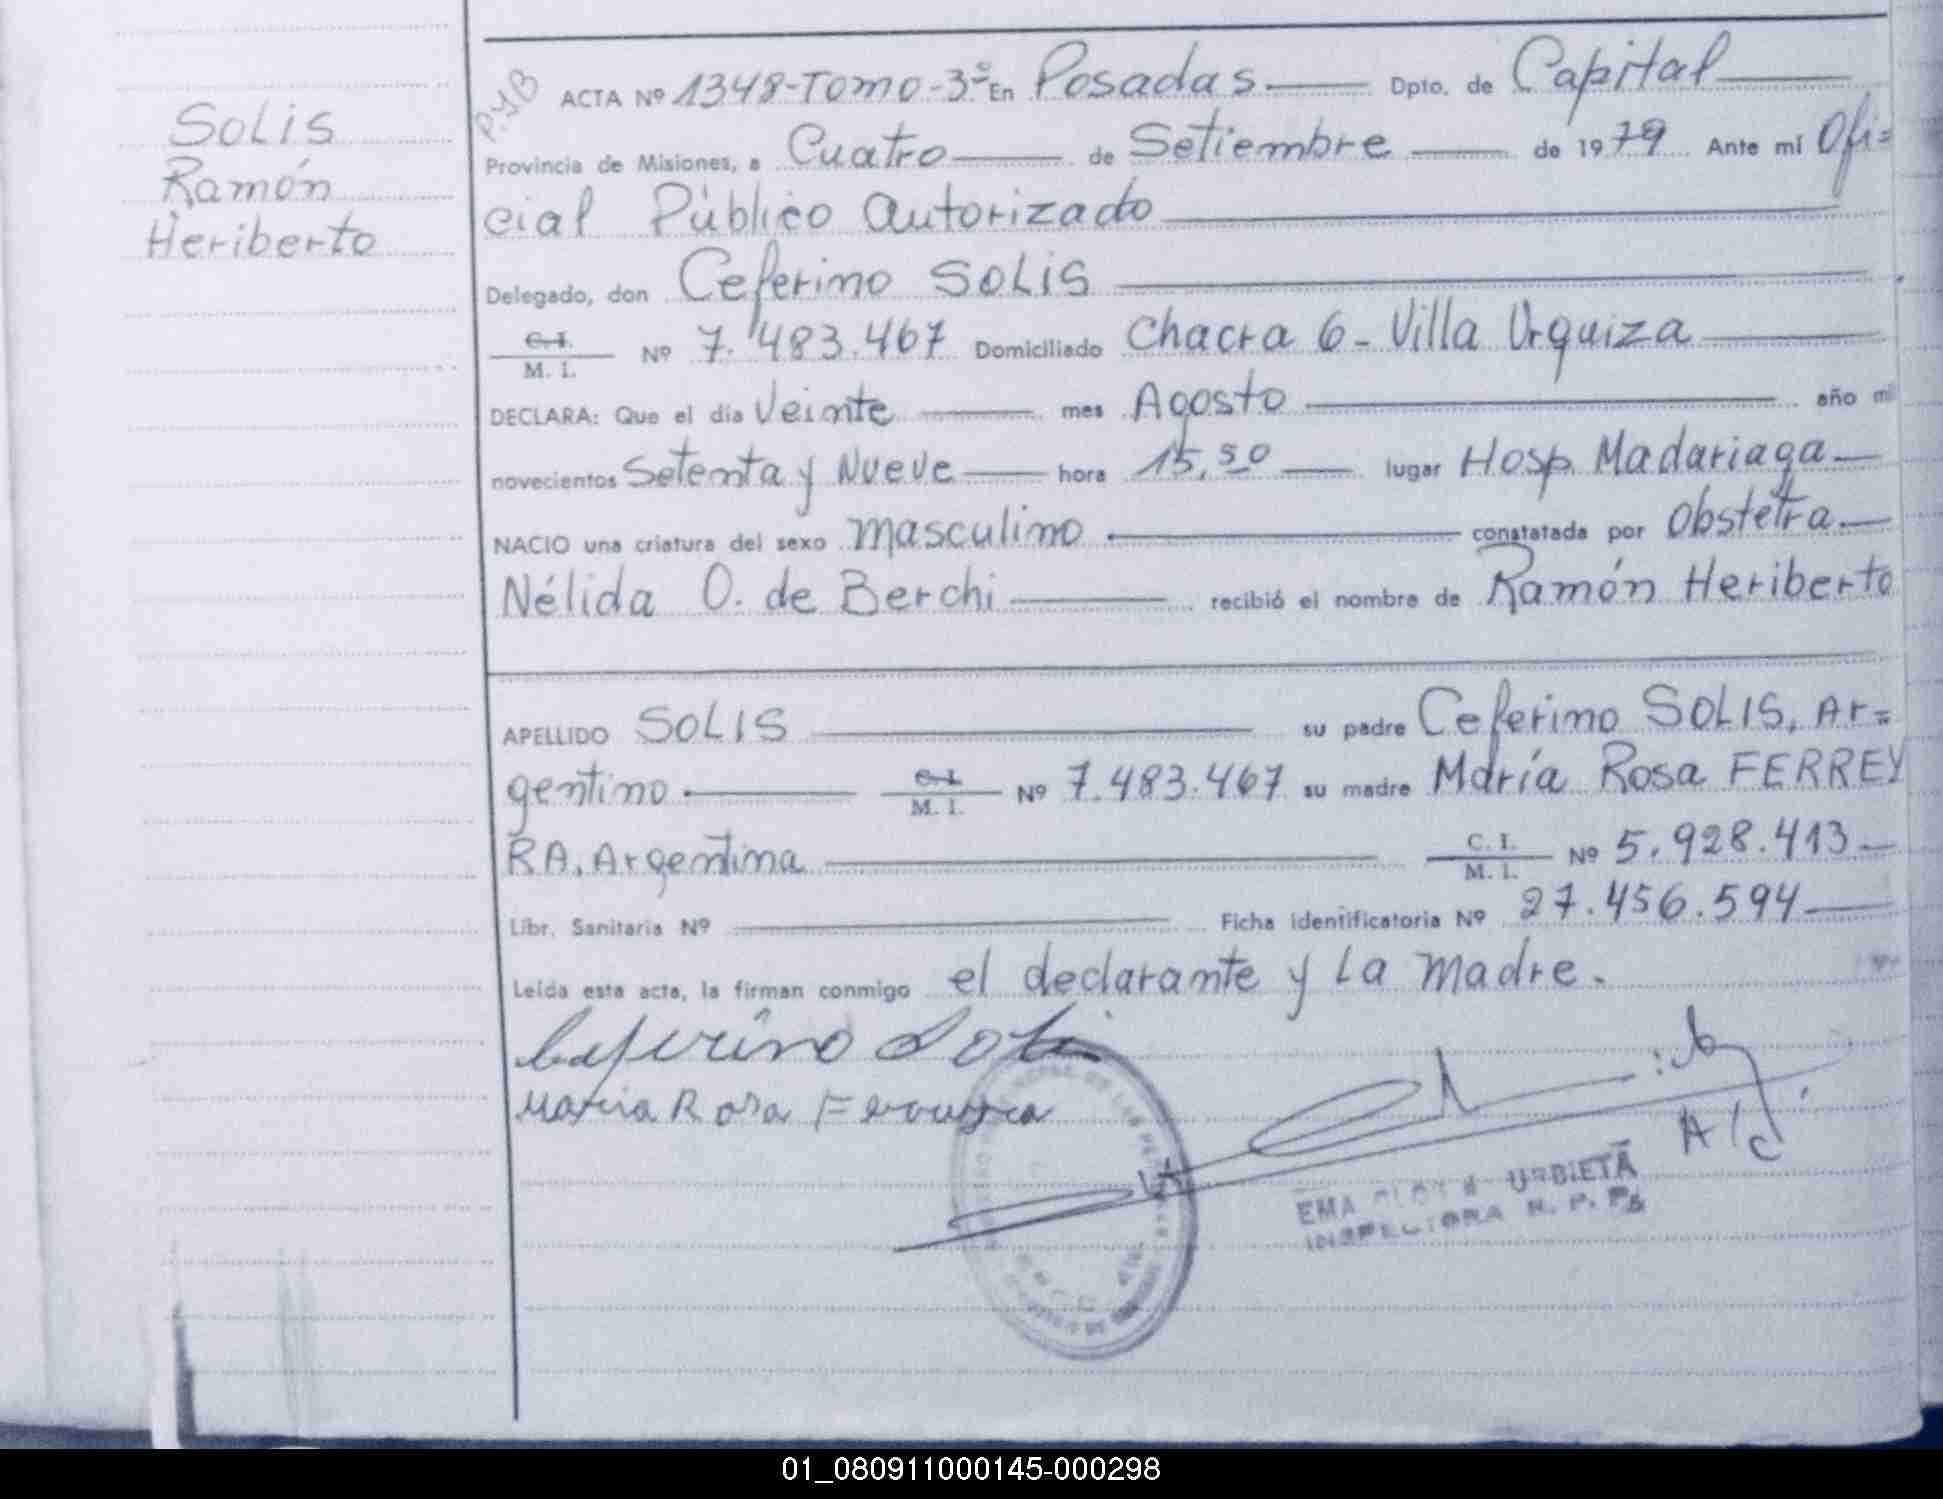 Solis
Ramón
Heriberto
P.y B
ACTA Nº 1348-Tomo-3º En Posadas Dpto. de Capital
Provincia de Misiones, a Cuatro de Setiembre de 1979 Ante mí Ofi=
cial Público autorizado
Delegado, don Ceferino SOLIS
C.I.
M. I. Nº 7.483.467 Domiciliado Chacra 6 - Villa Urquiza
DECLARA: Que el día Veinte mes Agosto año mil
novecientos Setenta y Nueve hora 15,50 lugar Hosp. Madariaga
NACIO una criatura del sexo masculino constatada por Obstetra
Nélida O. de Berchi recibió el nombre de Ramón Heriberto
APELLIDO SOLIS su padre Ceferino SOLIS, Ar=
gentino C.I. M. I. Nº 7.483.467 su madre María Rosa FERREY
RA, Argentina C. I. M. I. Nº 5.928.413
Libr. Sanitaria Nº Ficha identificatoria Nº 27.456.594
Leída esta acta, la firman conmigo el declarante y la madre.
Ceferino Solis
Maria Rosa Ferreyra
A/c
EMA URBIETA
INSPECTORA R. P. Ps
01_080911000145-000298